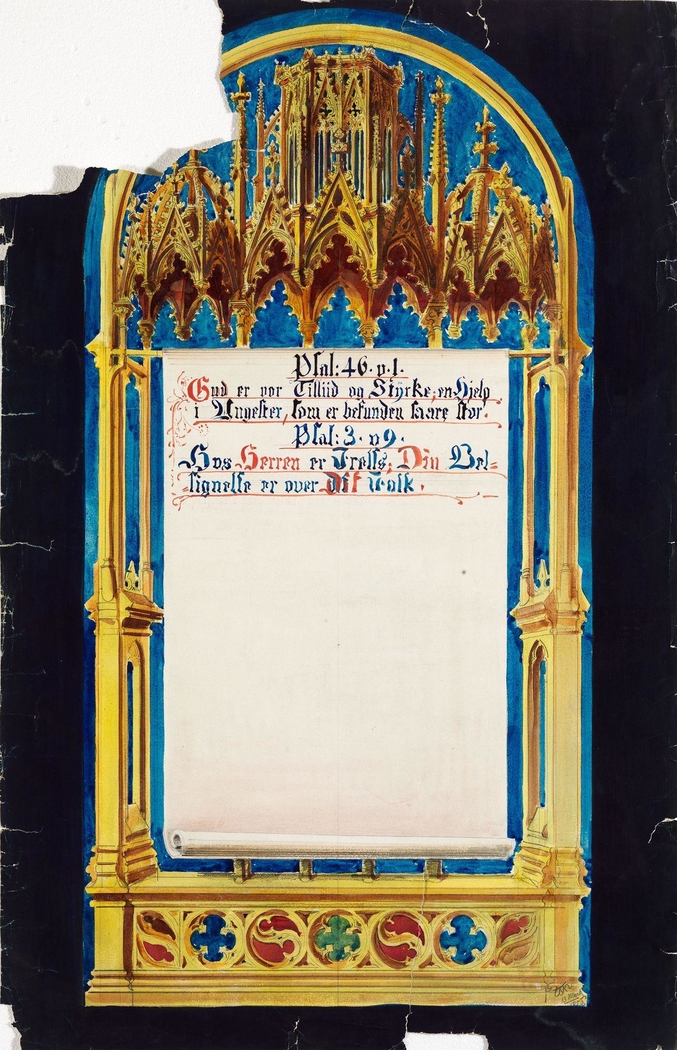 Psal: 46. v. 1.
Gud er vor Tilliid og Styrke, en Hjelp
i Angester, som er befunden saare stor.
Psal: 3. v 9.
Hos Herren er Frelse, Din Vel=
signelse er over Dit Folk.